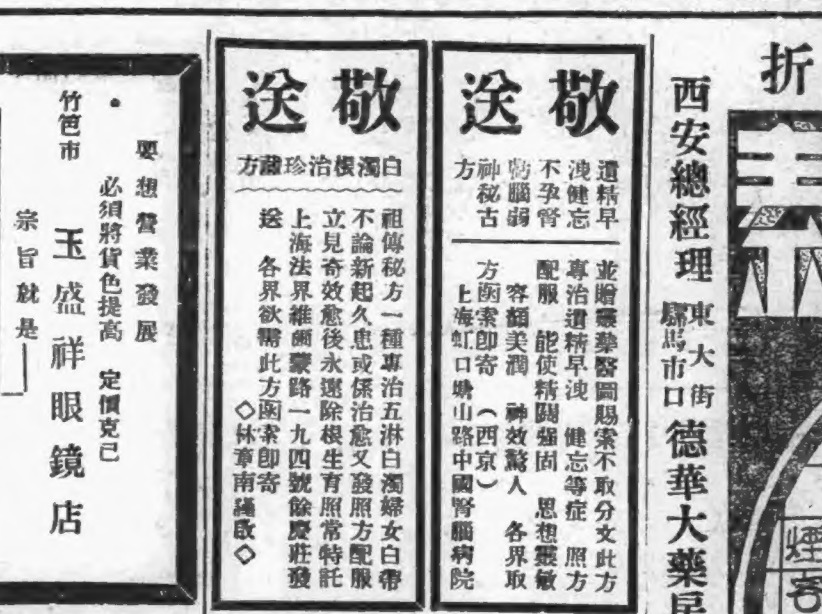 折
西安總經理
東大街
騾馬市口
德華大藥
敬送
遺精早
洩健忘
不孕腎
虧腦弱
神秘古
方
並贈靈藥醫圖賜索不取分文此方
專治遺精早洩 健忘等症 照方
配服 能使精關强固 思想靈敏
容顏美潤 神效驚人 各界取
方函索即寄 (西京)
上海虹口塘山路中國腎腦病院
敬送
白濁根治珍藏方
祖傳秘方一種專治五淋白濁婦女白帶
不論新起久患或係治愈又發照方配服
立見奇效愈後永遠除根生育照常特託
上海法界維爾蒙路一九四號餘慶莊發
送 各界欲需此方函索即寄
◇林章南謹啟◇
要想營業發展
• 必須將貨色提高 定價克己
竹笆市 玉盛祥眼鏡店
宗旨就是
煙